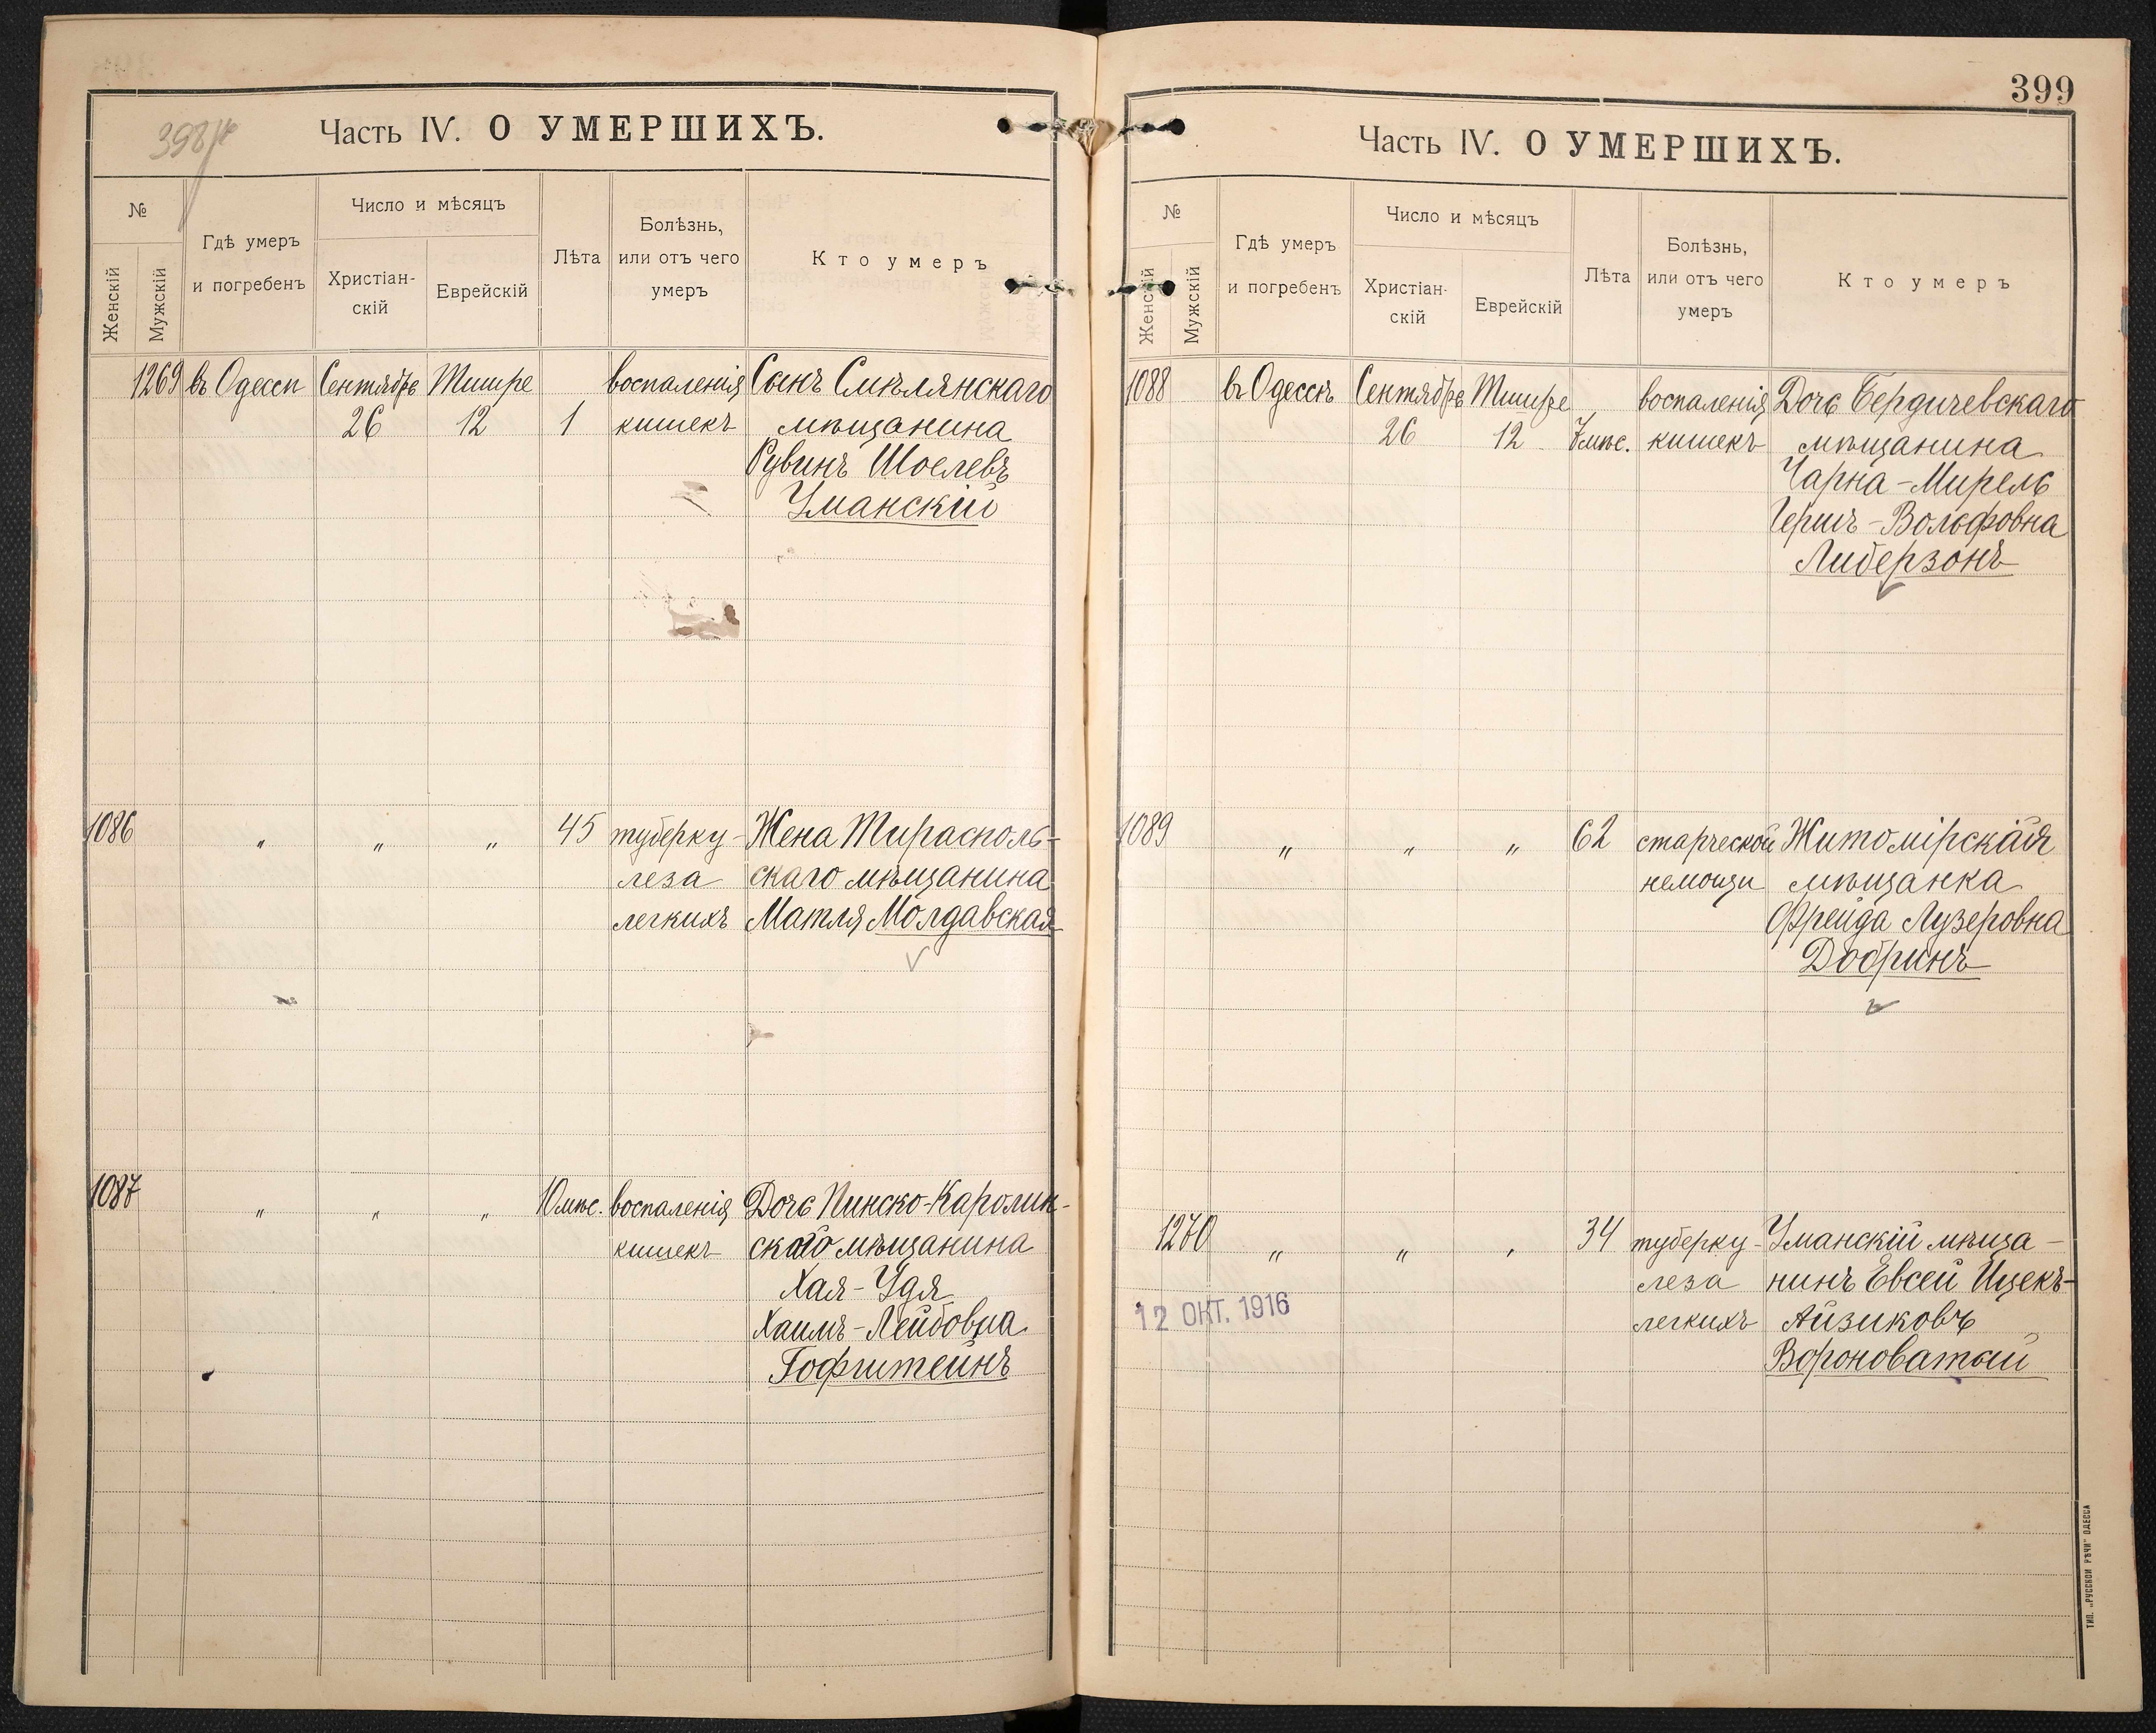 398 / к
Часть IV. О УМЕРШИХЪ.
№
Женскій
Мужскій
Гдѣ умеръ
и погребенъ
Число и мѣсяцъ
Христіан-
скій
Еврейскій
Лѣта
Болѣзнь,
или отъ чего
умеръ
Кто умеръ
1269 въ Одессѣ Сентябрь Тишре воспаленія Сынъ Смѣлянскаго
26 12 1 кишекъ мѣщанина
Рувинъ Шоелевъ
Уманскій
1086 " " " 45 туберку- Жена Тирасполь-
леза скаго мѣщанина
легкихъ Матля Молдавская
1087 " " " 10 мѣс. воспаленія Дочь Пинско-Каролин-
кишекъ скаго мѣщанина
Хая-Удя
Хаимъ-Лейбовна
Гофштейнъ
399
Часть IV. О УМЕРШИХЪ.
№
Женскій
Мужскій
Гдѣ умеръ
и погребенъ
Число и мѣсяцъ
Христіан-
скій
Еврейскій
Лѣта
Болѣзнь,
или отъ чего
умеръ
Кто умеръ
1088 въ Одессѣ Сентябрь Тишре воспаленія Дочь Бердичевскаго
26 12 7 мѣс. кишекъ мѣщанина
Чарна-Мирель
Гершъ-Вольфовна
Либерзонъ
1089 " " " 62 старческой Житомірская
немощи мѣщанка
Фрейда Лузеровна
Добринъ
1270 " " " 34 туберку- Уманскій мѣща-
леза нинъ Евсей Ицекъ-
легкихъ Айзиковъ
Вороноватый
12 ОКТ. 1916
ТИП. „РУССКОЙ РѢЧИ" ОДЕССА